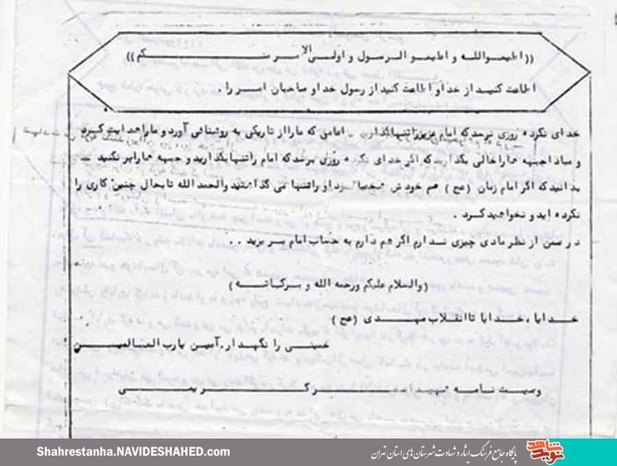 ((اطیعوالله و اطیعو الرسول و اولی الامر منکم))
اطاعت کنید از خدا و اطاعت کنید از رسول خدا و صاحبان امر را .
خدای نکرده روزی نرسد که امام عزیز را تنها بگذارید ، امامی که ما را از تاریکی به روشنائی آورد و ما را هدایت کرد
و مبادا جبهه ها را خالی بگذارید که اگر خدای نکرده روزی برسد که امام را تنها بگذارید و جبهه ها را پر نکنید
بدانید که اگر امام زمان (عج) هم خودش او را تنها می گذاشتید والحمد الله تا بحال چنین کاری را
نکرده اید و نخواهید کرد .
در ضمن از نظر مادی چیزی ندارم اگر هم دارم به حساب امام بریزید . .
(والسلام علیکم ورحمه الله و برکاته)
خدایا ، خدایا تا انقلاب مهدی (عج)
خمینی را نگهدار.آمین یارب العالمین
وصیت نامه شهید
Shahrestanha.NAVIDESHAHED.com
پایگاه جامع فرهنگ ایثار و شهادت شهرستان های استان تهران
نوید شاهد